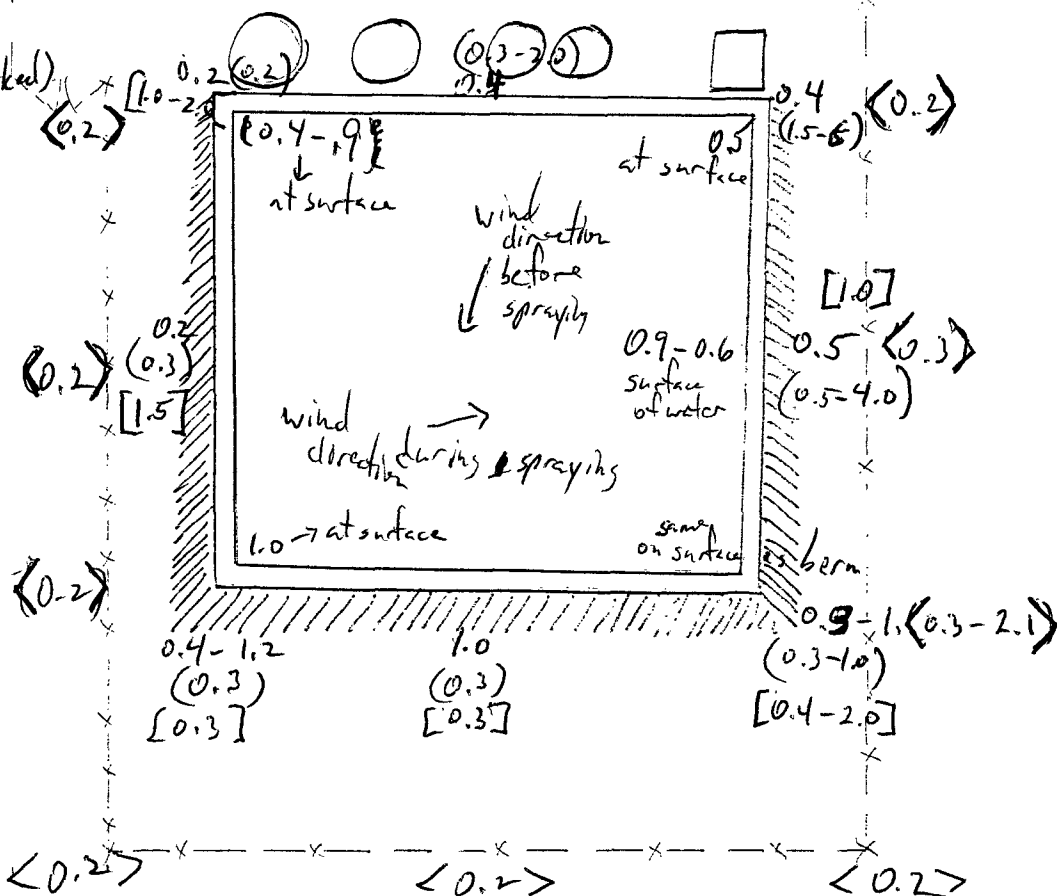 ked)
0.2 (0.2)
(0.3-2.0)
0.4
[1.0-2.0]
0.4 <0.2>
<0.2>
(1.5-6)
{0.4-.9}
at surface
0.5
at surface
wind
direction
before
spraying
[1.0]
0.2
(0.3)
<0.2>
[1.5]
0.9-0.6
surface
of water
0.5 <0.3>
(0.5-4.0)
wind
direction during spraying
1.0 → at surface
same
on surface as berm
<0.2>
<0.3-2.1>
0.4-1.2
(0.3)
[0.3]
1.0
(0.3)
[0.3]
(0.3-1.0)
[0.4-2.0]
<0.2>
<0.2>
<0.2>